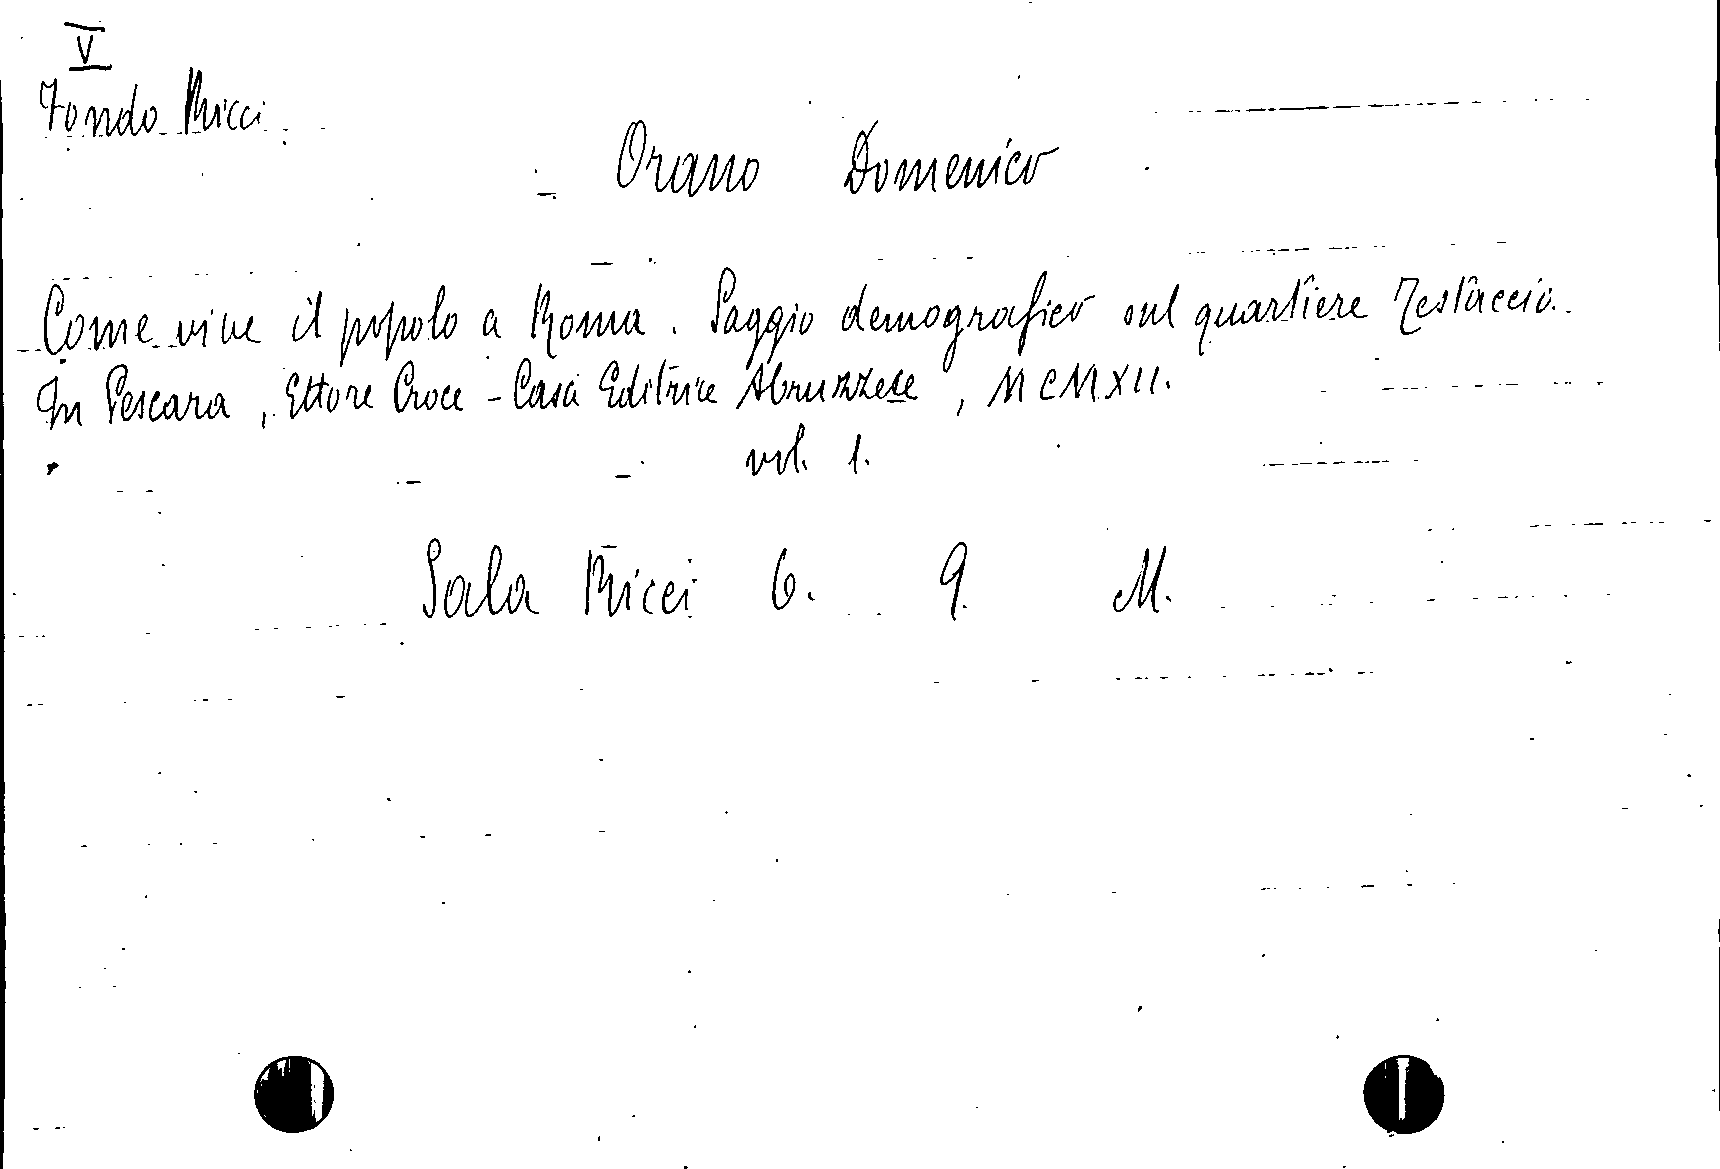 V
Fondo Ricci
Orano Domenico
Come vive il popolo a Roma. Saggio demografico sul quartiere Testaccio.
In Pescara, Ettore Croce - Casa Editrice Abruzzese, MCMXII.
vol. 1.
Sala Ricci 6. 9. M.